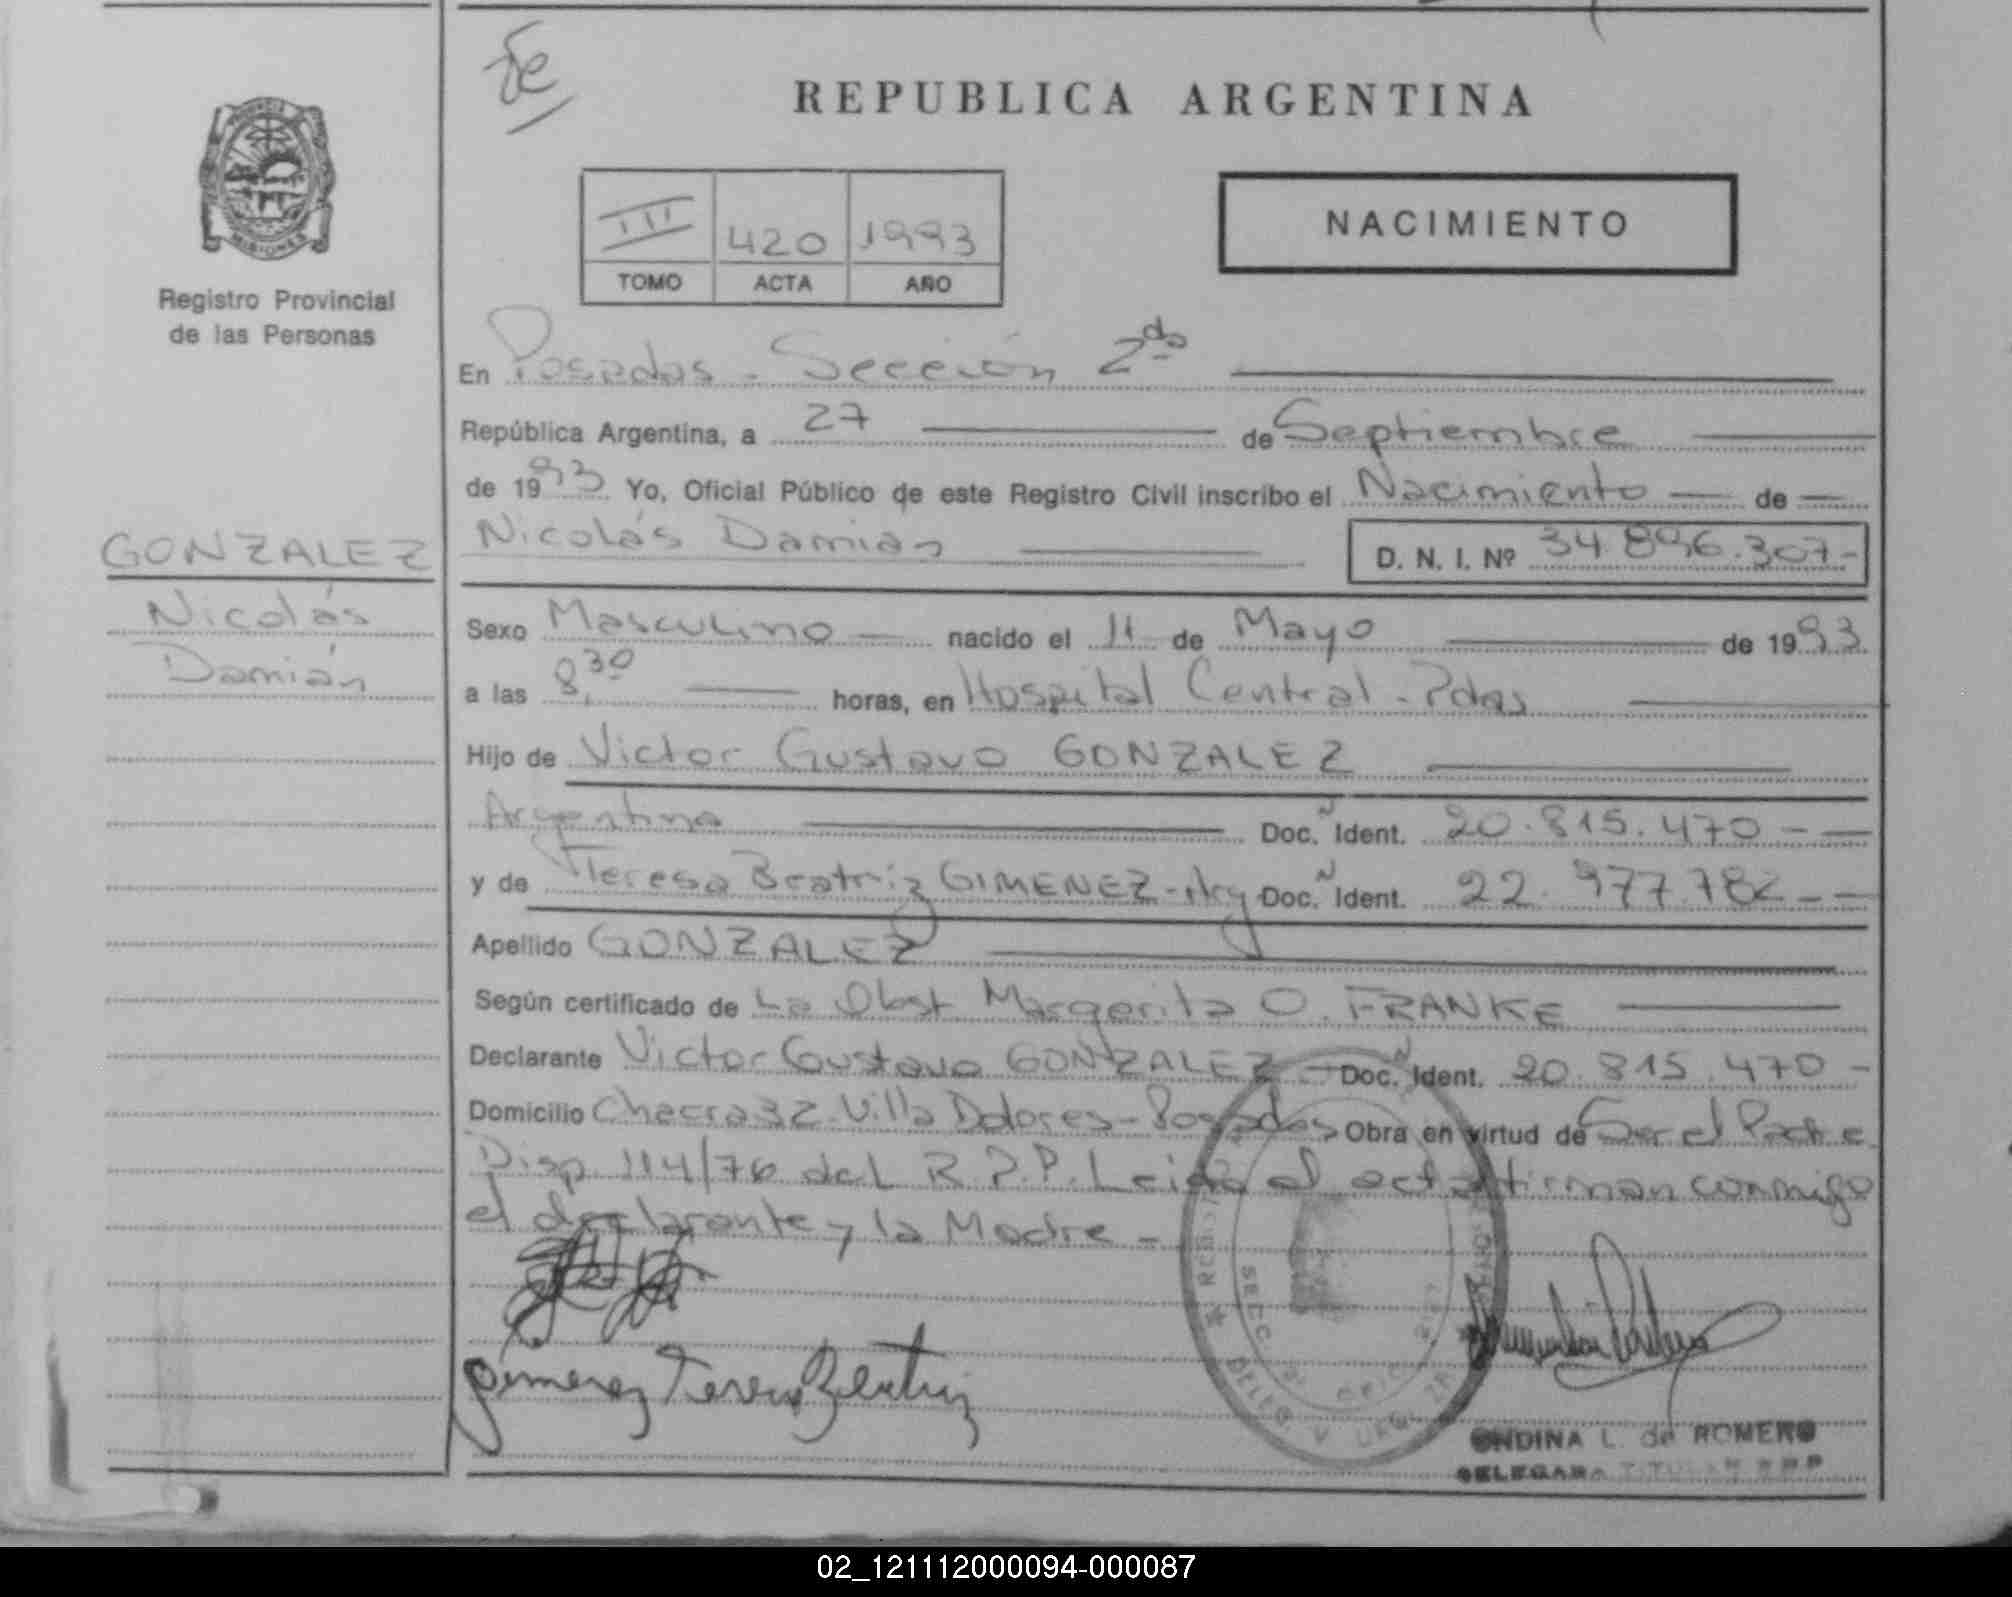 Fe
REPUBLICA ARGENTINA
MISIONES
III 420 1993
TOMO ACTA AÑO
NACIMIENTO
Registro Provincial
de las Personas
En Posadas - Sección 2da
República Argentina, a 27 de Septiembre
de 1993 Yo, Oficial Público de este Registro Civil inscribo el Nacimiento de
Nicolás Damián D. N. I. Nº 34.896.307-
GONZALEZ
Nicolás
Damián
Sexo Masculino nacido el 11 de Mayo de 1993
a las 8,30 horas, en Hospital Central - Pdas
Hijo de Victor Gustavo GONZALEZ
Argentino Doc. Ident. 20.815.470 -
y de Teresa Beatriz GIMENEZ - Arg Doc. Ident. 22.977.782 -
Apellido GONZALEZ
Según certificado de La Obst. Margarita O. FRANKE
Declarante Victor Gustavo GONZALEZ - Doc. Ident. 20.815.470 -
Domicilio Chacra 32. Villa Dolores - Posadas Obra en virtud de Ser el Padre
Disp. 114/76 del R.P.P. Leida el acta firman conmigo
el declarante y la Madre -
Gimenez Teresa Beatriz
ONDINA L. de ROMERO
DELEGADA TITULAR RPP
02_121112000094-000087